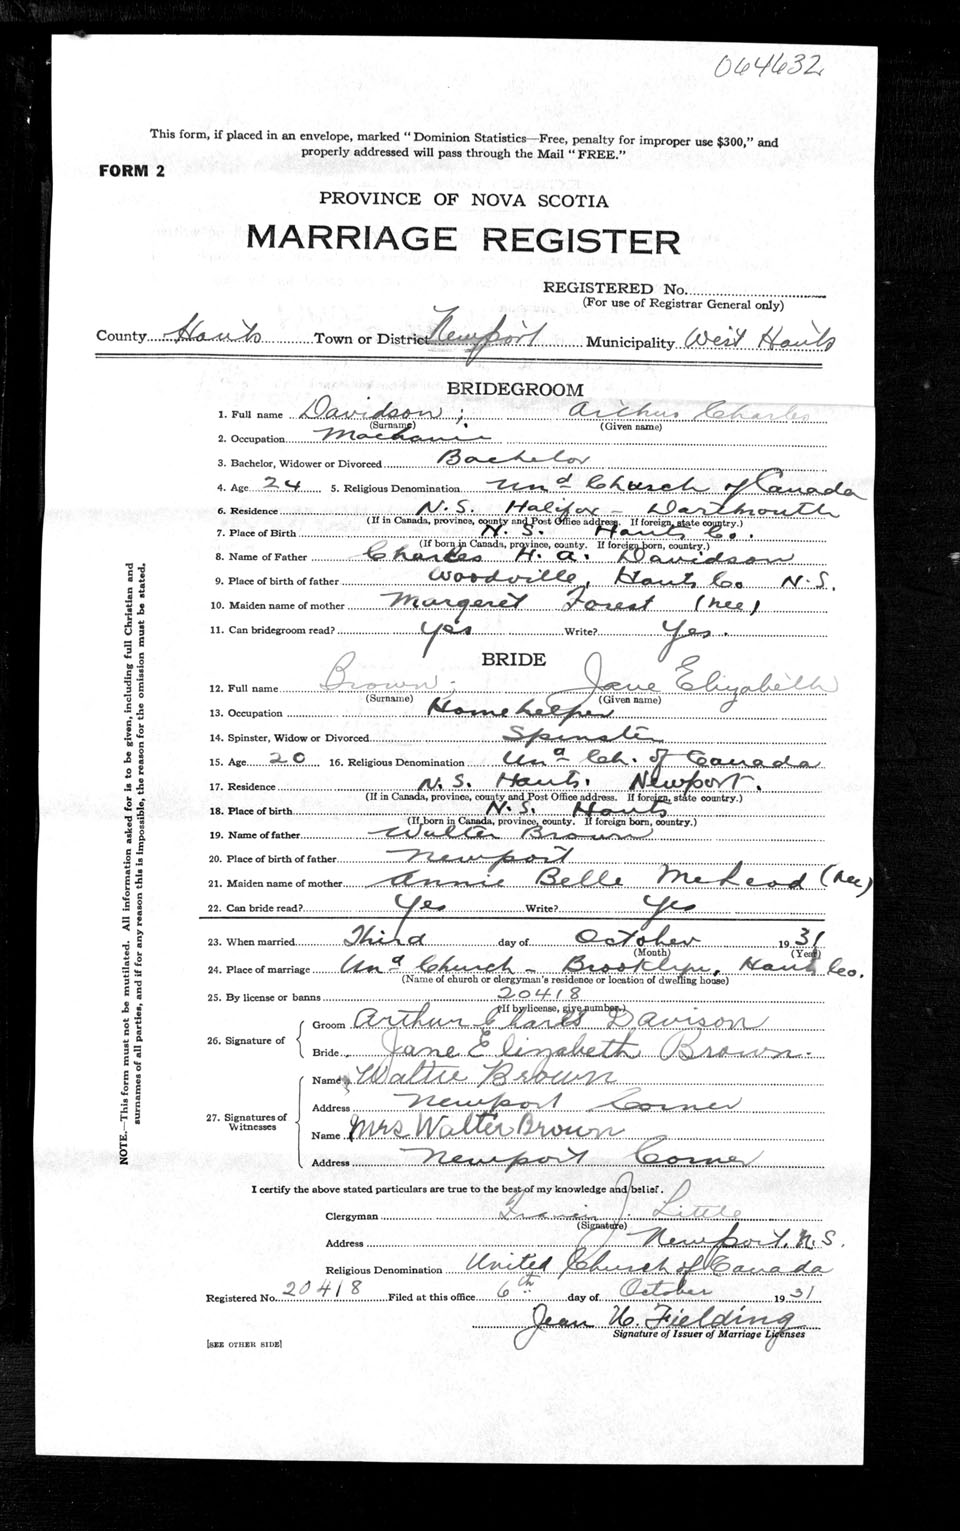 064632
This form, if placed in an envelope, marked “Dominion Statistics—Free, penalty for improper use $300,” and
properly addressed will pass through the Mail “FREE.”
FORM 2
PROVINCE OF NOVA SCOTIA
MARRIAGE REGISTER
REGISTERED No.
(For use of Registrar General only)
County Hants Town or District Newport Municipality West Hants
BRIDEGROOM
1. Full name Davidson; Arthur Charles
(Surname) (Given name)
2. Occupation Mechanic
3. Bachelor, Widower or Divorced Bachelor
4. Age 24 5. Religious Denomination Und Church of Canada
6. Residence N. S. Halifax - Dartmouth
(If in Canada, province, county and Post Office address. If foreign, state country.)
7. Place of Birth N. S. Hants Co.
(If born in Canada, province, county. If foreign born, country.)
8. Name of Father Charles H. A. Davidson
9. Place of birth of father Woodville, Hants Co N. S.
10. Maiden name of mother Margeret Forest (nee)
11. Can bridegroom read? Yes Write? Yes.
BRIDE
12. Full name Brown; Jane Elizabeth
(Surname) (Given name)
13. Occupation Homehelper
14. Spinster, Widow or Divorced Spinster
15. Age 20 16. Religious Denomination Und Ch. of Canada
17. Residence N. S. Hants. Newport.
(If in Canada, province, county and Post Office address. If foreign, state country.)
18. Place of birth N. S. Hants
(If born in Canada, province, county. If foreign born, country.)
19. Name of father Walter Brown
20. Place of birth of father Newport
21. Maiden name of mother Annie Belle McLeod (nee)
22. Can bride read? Yes Write? Yes
23. When married Third day of October 1931
(Month) (Year)
24. Place of marriage Und Church - Brooklyn, Hants Co.
(Name of church or clergyman's residence or location of dwelling house)
25. By license or banns 20418
(If by license, give number.)
26. Signature of
Groom Arthur Charls Davison
Bride Jane Elizabeth Brown.
27. Signatures of Witnesses
Name Walter Brown
Address Newport Corner
Name Mrs Walter Brown
Address Newport Corner
I certify the above stated particulars are true to the best of my knowledge and belief.
Clergyman Francis J. Little
(Signature)
Address Newport, N. S.
Religious Denomination United Church of Canada
Registered No. 20418 Filed at this office 6th day of October 1931
Jean U. Fielding
Signature of Issuer of Marriage Licenses
[SEE OTHER SIDE]
NOTE.—This form must not be mutilated. All information asked for is to be given, including full Christian and
surnames of all parties, and if for any reason this is impossible, the reason for the omission must be stated.